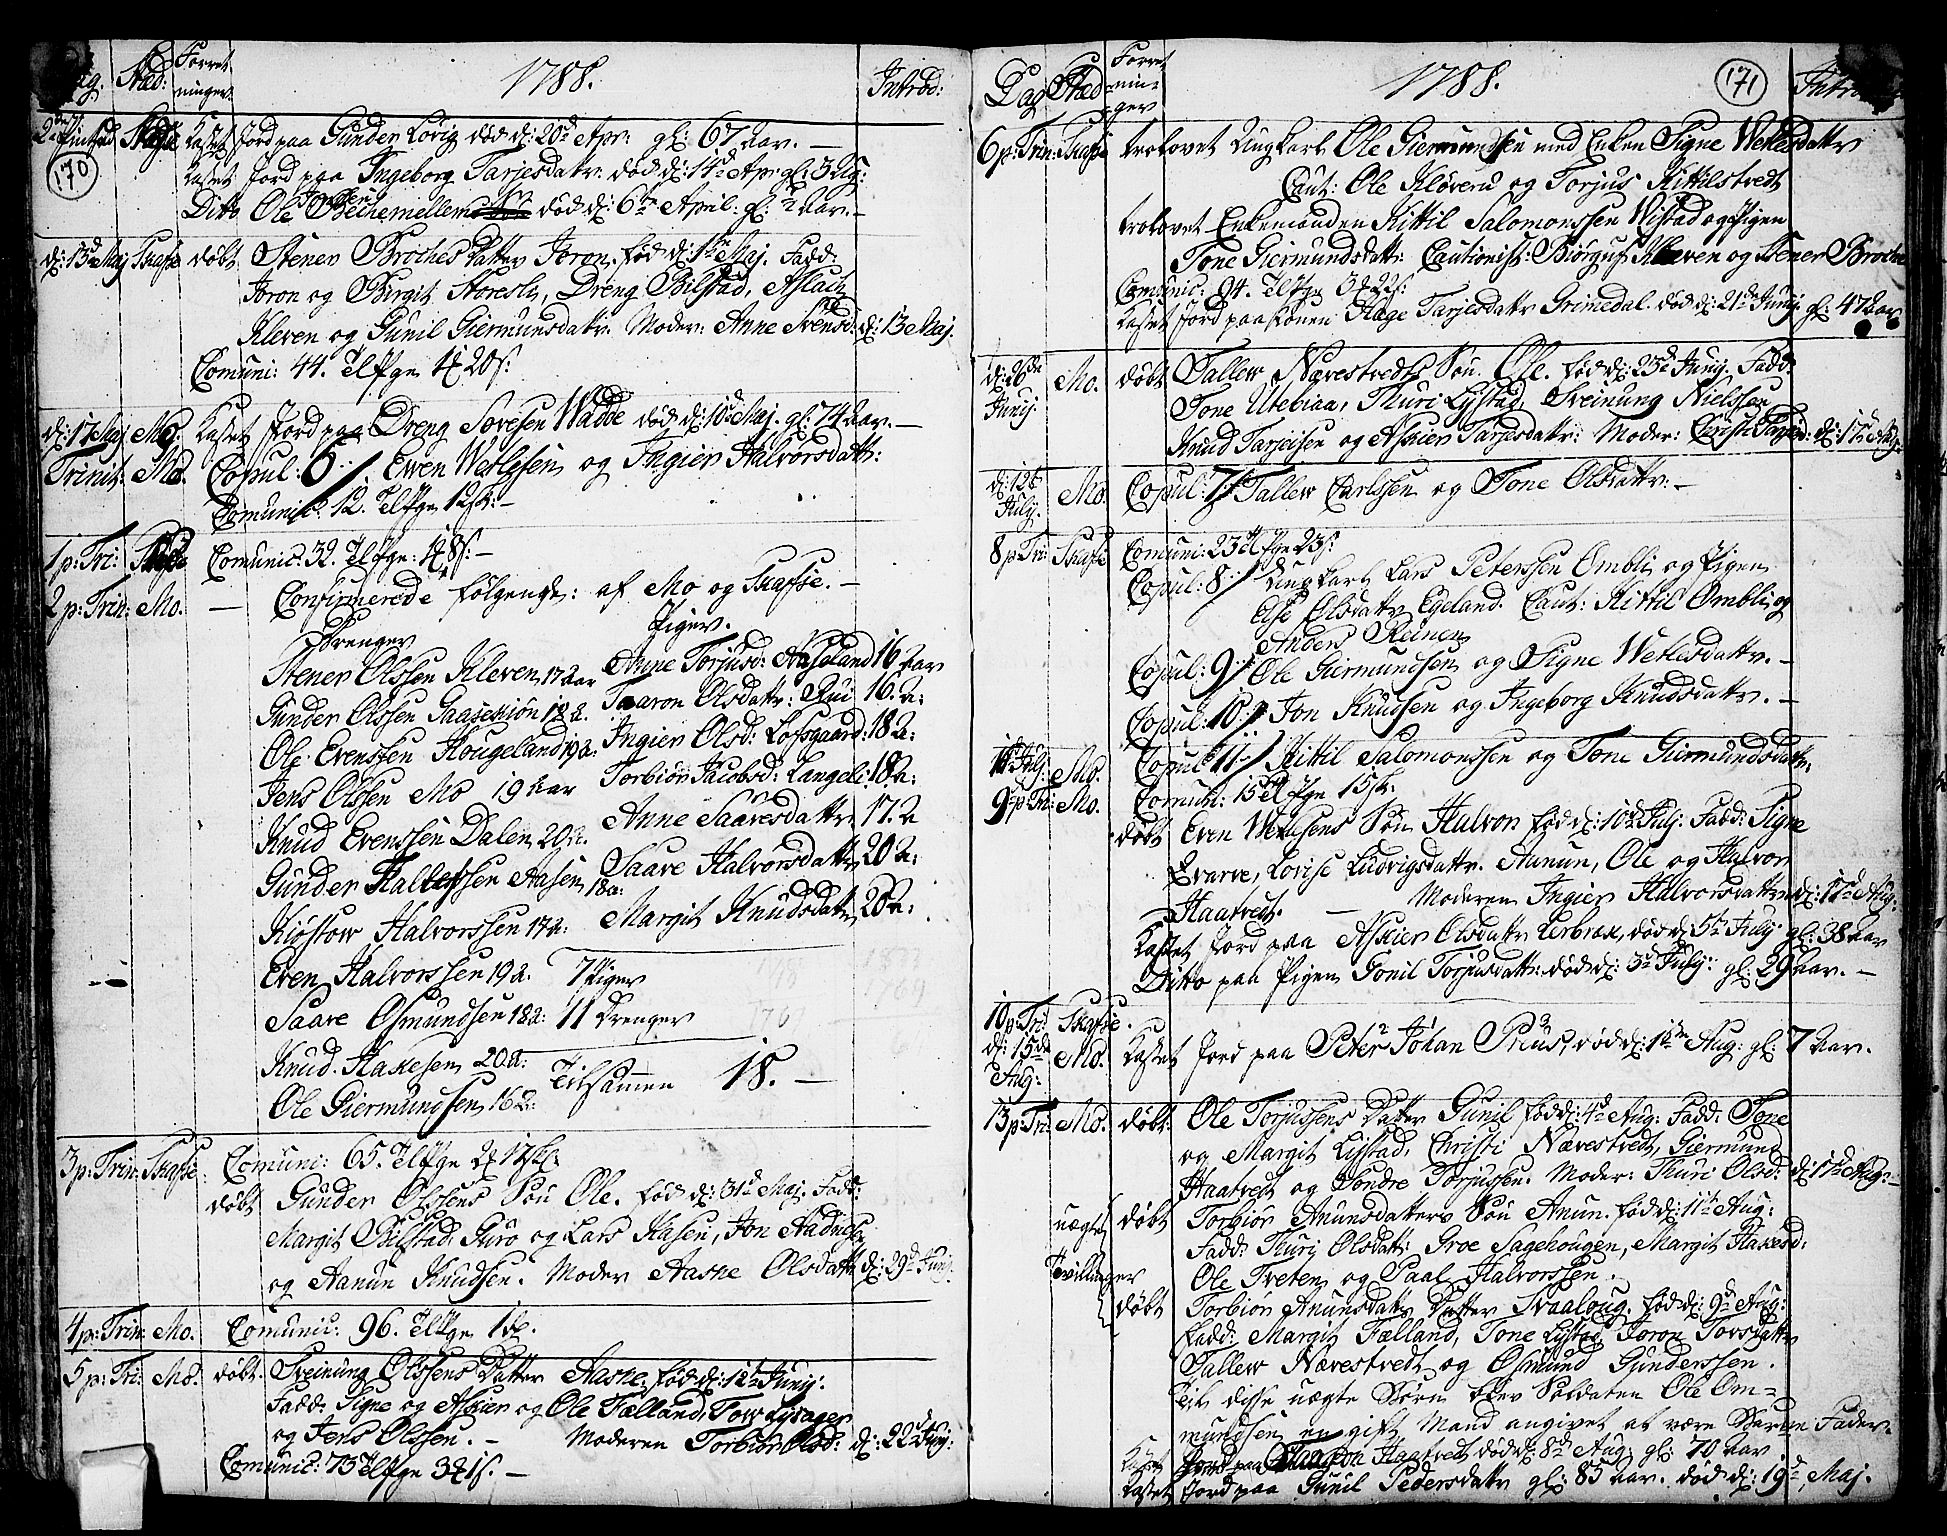 Dag. Sted: Forret
ninger. 1788. Introd:
170
2den Pintsed Skafse Kastet Jord paa Gunder Lövig död d: 20d Apr: gl: 67 Aar. —
Kastet Jord paa Ingeborg Tarjesdatr: död d: 14d Apr gl: 3 Ug:
Ditto Ole Bechemellem död d: 6te April: gl: 2 Aar. —
d: 13d Maj Skafse döbt Stener Broches Datter Joron. föd d: 1te Maj. Fadd:
Joron og Birgit Storesli, Dreng Bilstad, Aslach
Kleven og Gunil Giermunsdatr: Moder: Anne Svensd: d: 13 Maj.
Comuni: 44. Telftge 20 s:
d: 17 Maj Mo: Kastet Jord paa Dreng Sövesen Wadde död d: 10d Maj. gl: 74 Aar. —
Trinit: Mo. Copul: 6 / Even Wetlesen og Ingier Halvorsdatr:
Comunic: 12. Telftge 12 sk: —
1 p: Tri: Skafse Comunic: 32. Telftge: 8 s: —
2 p: Trin: Mo. — Confirmerede fölgende: af Mo og Skafse. —
Drenger Piger.
Stener Olssen Kleven 17 Aar Anne Torjusd: Aaseland 16 Aar
Gunder Olssen Gaaseskiön 18 a. Taaron Olsdattr: Rui 16. a:
Ole Evensen Hougeland 19 a: Ingier Olsd: Lofsgaard: 18 a:
Jens Olssen Mo 19 Aar Torbiör Jacobsd: Langeli 18 a:
Knud Evenssen Dalen 20 a: Anne Saavesdattr 17. a
Gunder Hallessen Aasen 18 a: Saave Halvorsdattr 20 a:
Kiöstow Halvorssen 17 a: Margit Knudsdattr 20 a:
Even Halvorssen 19 a. 7 Piger
Saave Osmundsen 18 a: 11 Drenger
Knud Haakesen 20 a: Tilsammen 18. —
Ole Giermundsen 16 a:
3 p: Trin: Skafse. Comuni: 65. Telftge 17 sk:
döbt Gunder Olssens Sön Ole. föd d: 31d Maj. Fadd:
Margit Bilstad, Guro og Lars Aasen, Jon Aadnesen
og Aanun Knudsen. Moder Aasne Olsdattr d: 29d Junj.
4 p: Trin: Mo. Comunic: 96. Telftge 1
5 p: Tri: Mo. döbt. Sveinung Olssens Datter Aasne. föd d: 12te Junij:
Fadd: Signe og Askier og Ole Fælland, Tow Lysager
og Jens Olssen. — Moderen Torbiör Olsd: d: 22d Junj:
Comunic: 73 Telftge 3 1 s. —
Dag Sted Forret
nin-
ger 1788. 171 Introd
6 p: Trin: Skafse trolovet Ungkarl Ole Giermundsen med Enken Signe Wetlesdattr
Caut: Ole Klöveru og Torjus Kittilstvedt
trolovet Enkemanden Kittil Salomonssen Wistad og Pigen
Tone Giermundsdattr: Cautionist: Biörguf Kleven og Stener Broche
Comunic: 94. Telftge 3 22 s:
Kastet Jord paa Konen Hæge Tarjesdattr Grimedal. död d: 21de Junij. gl: 47 Aar
d: 26de
Junij. Mo. döbt Tallew Nærestvedts Sön. Ole. föd d: 23d Junij. Fadd:
Tone Utebiaa, Thuri Lystad, Sveinung Nielssen
Knud Tarjeisen og Askier Tarjesdattr: Moder: Christi d: 17d Aug.
d: 12te
July. Mo. Copul: 7 / Tallew Carlssen og Tone Olsdattr: —
8 p: Tri: Skafse Comuni: 23 Telftge 23 s:
Copul: 8 / Ungkarl Lars Peterssen Ombli og Pigen
Else Olsdattr Egeland. Caut: Kittil Ombli og
Anders Reinen
Copul: 9 / Ole Giermundsen og Signe Wetlesdattr. —
Copul: 10 / Jon Knudsen og Ingeborg Knudsdattr. —
Julj: Mo. Copul 11 / Kittil Salomonssen og Tone Giermundsdattr:
9 p: Tri: Mo. Comuni: 15 Telftge 15 sk:
döbt Even Wetlesens Sön Halvor föd d: 10de Julj: Fadd: Signe
Evarve, Lovise Ludvigsdattr. Aanun, Ole og Halvor
Haatvedt. — Moderen Ingier Halvorsdattr d: 17d Aug:
Kastet Jord paa Askier Olsdattr Lerbrek, död d: 5te July gl: 38 Aar
Ditto paa Pigen Gonil Torjusdattr. död d: 3d July: gl: 29 Aar. —
10 p: Tri: Skafse.
d: 15de
Aug: Mo. Kastet Jord paa Peter Johan Prius, död d: 1te Aug: gl: 7 Aar.
13 p: Tri: Mo. döbt: Ole Torjussens Datter Gunil föd d: 4d Aug: Fadd: Tone
og Margit Lystad, Christi Nærestvedt, Giermund
Haatvedt og Sondre Torjussen. Moder: Thuri Olsd: d: 17d Aug: —
uægte döbt Torbiör Anunsdatters Sön Anun. föd d: 11te Aug:
Fadd: Thurj Olsdatr: Groe Sagehougen, Margit Haakesd:
Tvillinger Ole Treten og Paal Halvorssen.
döbt Torbiör Anunsdatter Datter Svaaloug. föd d: 9d Aug:
Fadd: Margit Fælland, Tone Lystad, Joron Tovsdattr
Tallew Nærestvedt og Osmund Gunderssen.
Til disse uægte Börn blev Soldaten Ole Om=
mundsen en gift Mand angivet at være Barne Fader.
Kastet Jord paa Haatvedt död d: 8d Aug: gl: 70 Aar
Kastet Jord paa Gunil Pedersdattr gl: 85 Aar. död d: 19d Maj.